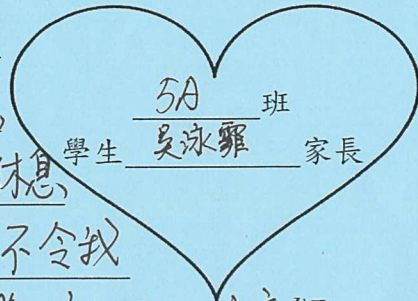 5A 班
學生 吳泳霏 家長
休息
不令我